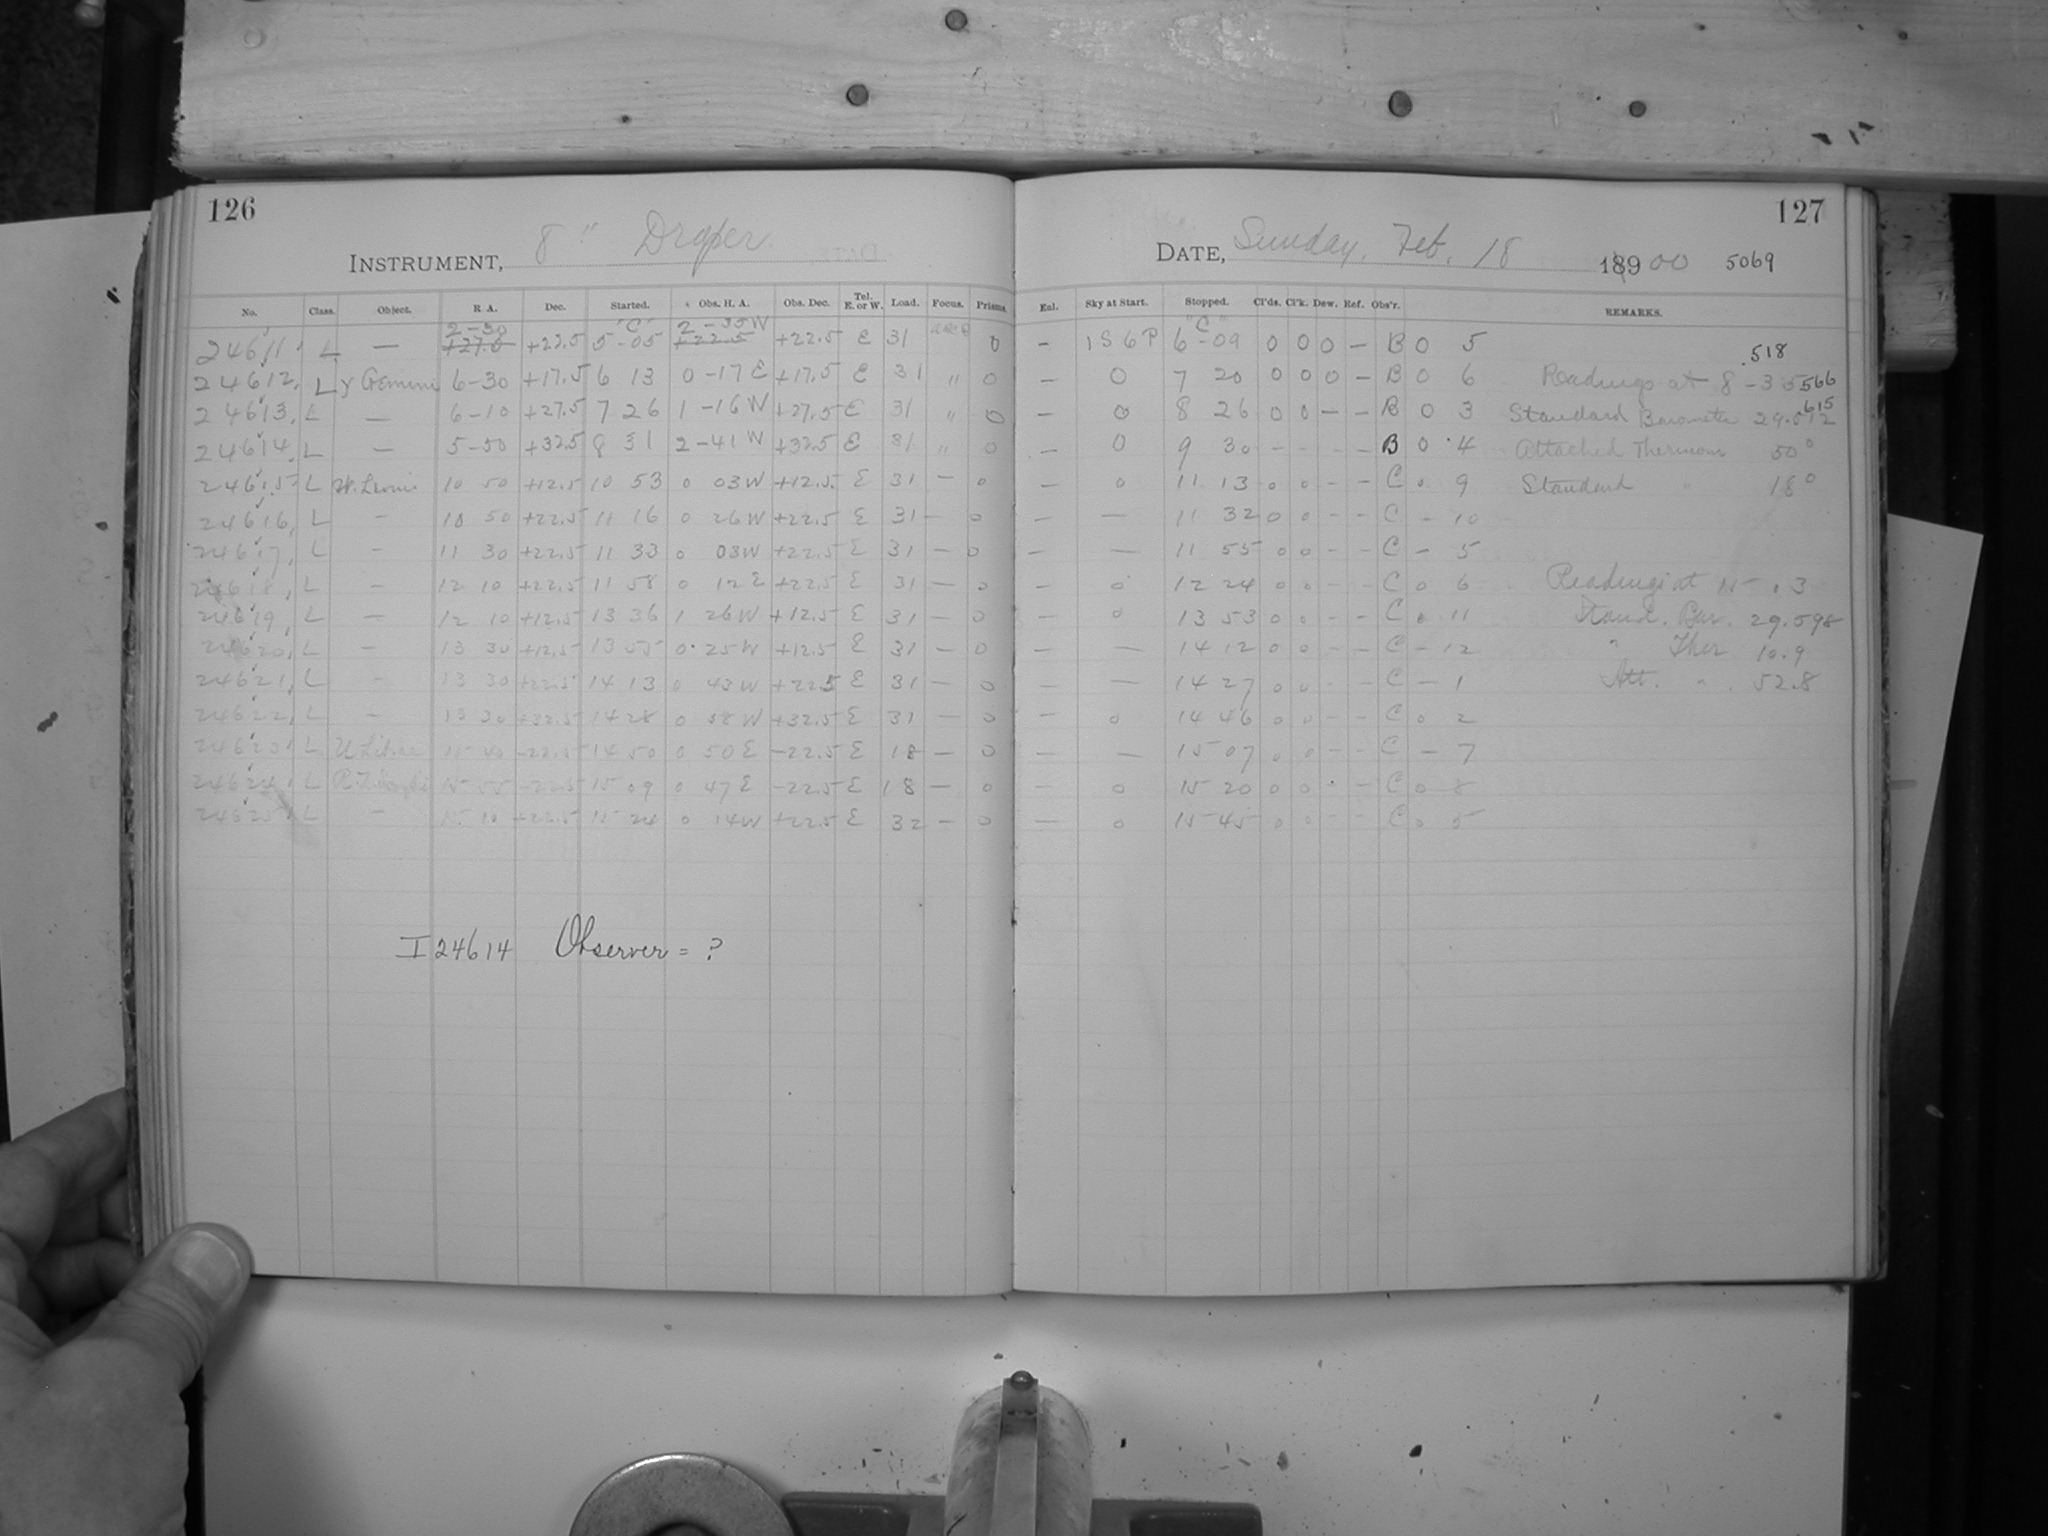 126
INSTRUMENT, 8" Draper
No. Class. Object. R A. Dec. Started. Obs. H. A. Obs. Dec. Tel. E. or W. Load. Focus. Prisms
2-30 "C" 2-35W
24611. L — +27.5 +22.5 5-05 +22.5 +22.5 E 31 0
24612, L γ Gemini 6-30 +17.5 6 13 0-17 E +17.5 E 31 " 0
24613, L — 6-10 +27.5 7 26 1-16 W +27.5 E 31 " 0
24614, L — 5-50 +32.5 8 31 2-41 W +32.5 E 31 " 0
24615 L W. Leonis 10 50 +12.5 10 53 0 03W +12.5. E 31 — 0
24616, L — 10 50 +22.5 11 16 0 26W +22.5 E 31 — 0
24617, L — 11 30 +22.5 11 33 0 03W +22.5 E 31 — 0
24618, L — 12 10 +22.5 11 58 0 12 E +22.5 E 31 — 0
24619, L — 12 10 +12.5 13 36 1 26W +12.5 E 31 — 0
24620, L — 13 30 +12.5 13 55 0 25W +12.5 E 31 — 0
24621, L — 13 30 +22.5 14 13 0 43W +22.5 E 31 — 0
24622, L — 13 30 +32.5 14 28 0 58W +32.5 E 31 — 0
24623, L U Librae 15 40 -22.5 14 50 0 50 E -22.5 E 18 — 0
24624, L 15 55 -22.5 15 09 0 47 E -22.5 E 18 — 0
24625, L — 15 10 +22.5 15 24 0 14W +22.5 E 32 — 0
I 24614 Observer = ?
127
DATE, Sunday, Feb. 18 18900 5069
Enl. Sky at Start. Stopped. Cl'ds. Cl'k. Dew. Ref. Obs'r. REMARKS.
"C"
— 1S6P 6-09 0 0 0 — B 0 5 .518
— 0 7 20 0 0 0 — B 0 6 Readings at 8-35 566
— 0 8 26 0 0 — — B 0 3 Standard Barometer 29.512 .615
— 0 9 30 - - - - B 0 4 Attached Thermom 50°
— 0 11 13 0 0 - - C 0 9 Standard " 18°
— — 11 32 0 0 - - C — 10
— — 11 55 0 0 - - C — 5
— 0 12 24 0 0 - - C 0 6 Readings at 15 .3
— 0 13 53 0 0 - - C 0 11 Stand. Bar. 29.598
— — 14 12 0 0 - - C — 12 " Ther 10.9
— — 14 27 0 0 - - C — 1 Att. " 52.8
— 0 14 46 0 0 - - C 0 2
— — 15 07 0 0 - - C — 7
— 0 15 20 0 0 - - C 0 8
— 0 15 45 0 0 - - C 0 5